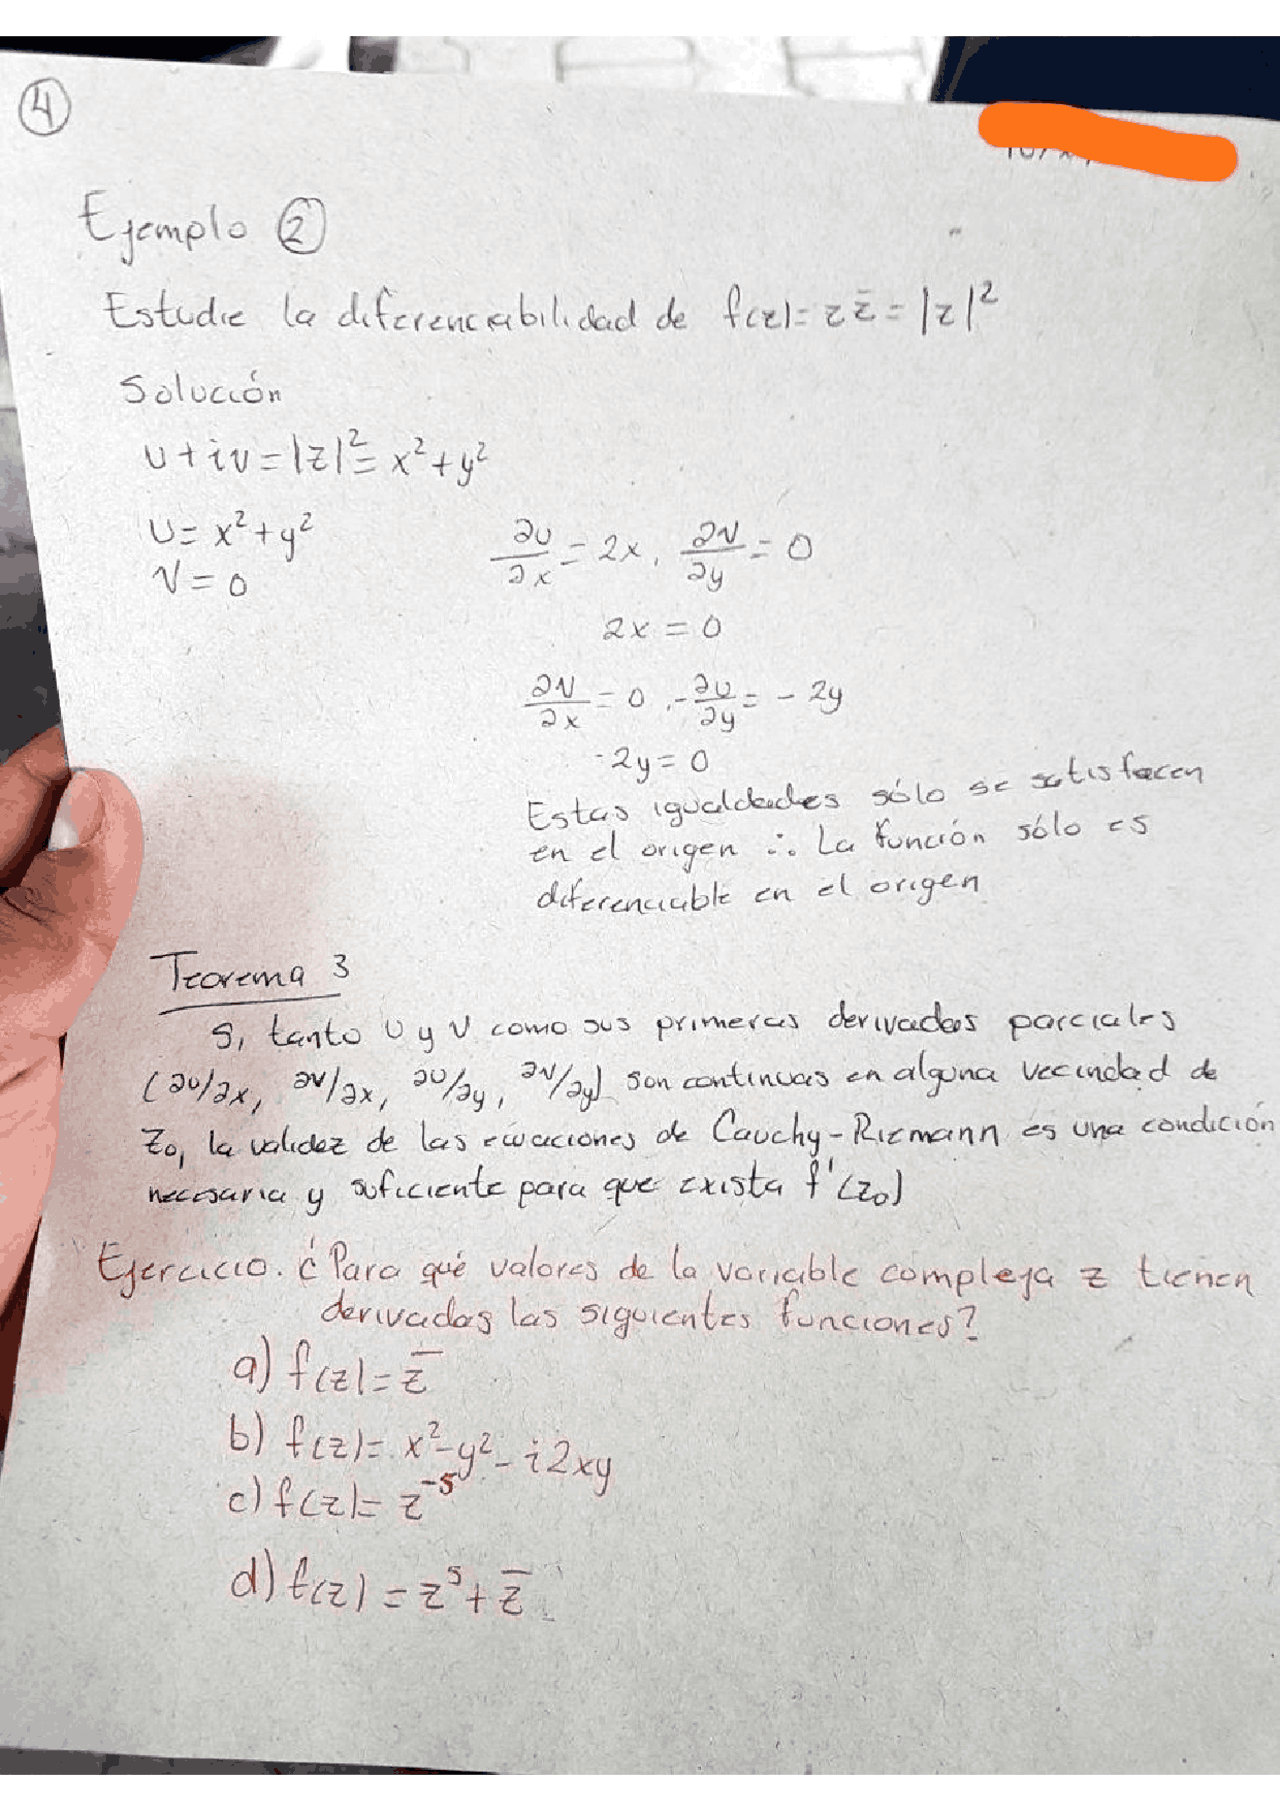 ④
Ejemplo ②
Estudie la diferenciabilidad de f(z)= z z̄ = |z|²
Solución
u + iv = |z|² = x² + y²
u = x² + y²
v = 0
∂u/∂x = 2x, ∂v/∂y = 0
2x = 0
∂v/∂x = 0, -∂u/∂y = -2y
-2y = 0
Estas igualdades sólo se satisfacen
en el origen ∴ La función sólo es
diferenciable en el origen
Teorema 3
Si tanto u y v como sus primeras derivadas parciales
(∂u/∂x, ∂v/∂x, ∂u/∂y, ∂v/∂y) son continuas en alguna vecindad de
z₀, la validez de las ecuaciones de Cauchy-Riemann es una condición
necesaria y suficiente para que exista f'(z₀)
Ejercicio. ¿Para qué valores de la variable compleja z tienen
derivadas las siguientes funciones?
a) f(z) = z̄
b) f(z) = x² - y² - i2xy
c) f(z) = z⁻⁵
d) f(z) = z⁵ + z̄